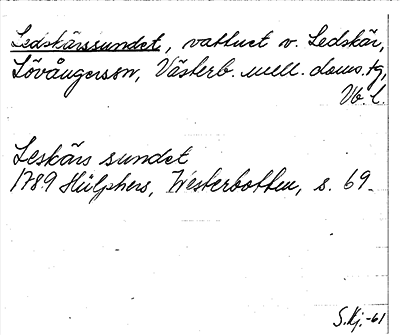 Ledskärssundet, vattnet v. Ledskär,
Lövångerssn, Västerb. mell. doms.tg,
Vb. l.
Leskärs sundet
1789 Hülphers, Westerbotten, s. 69.
S.Kj.-61